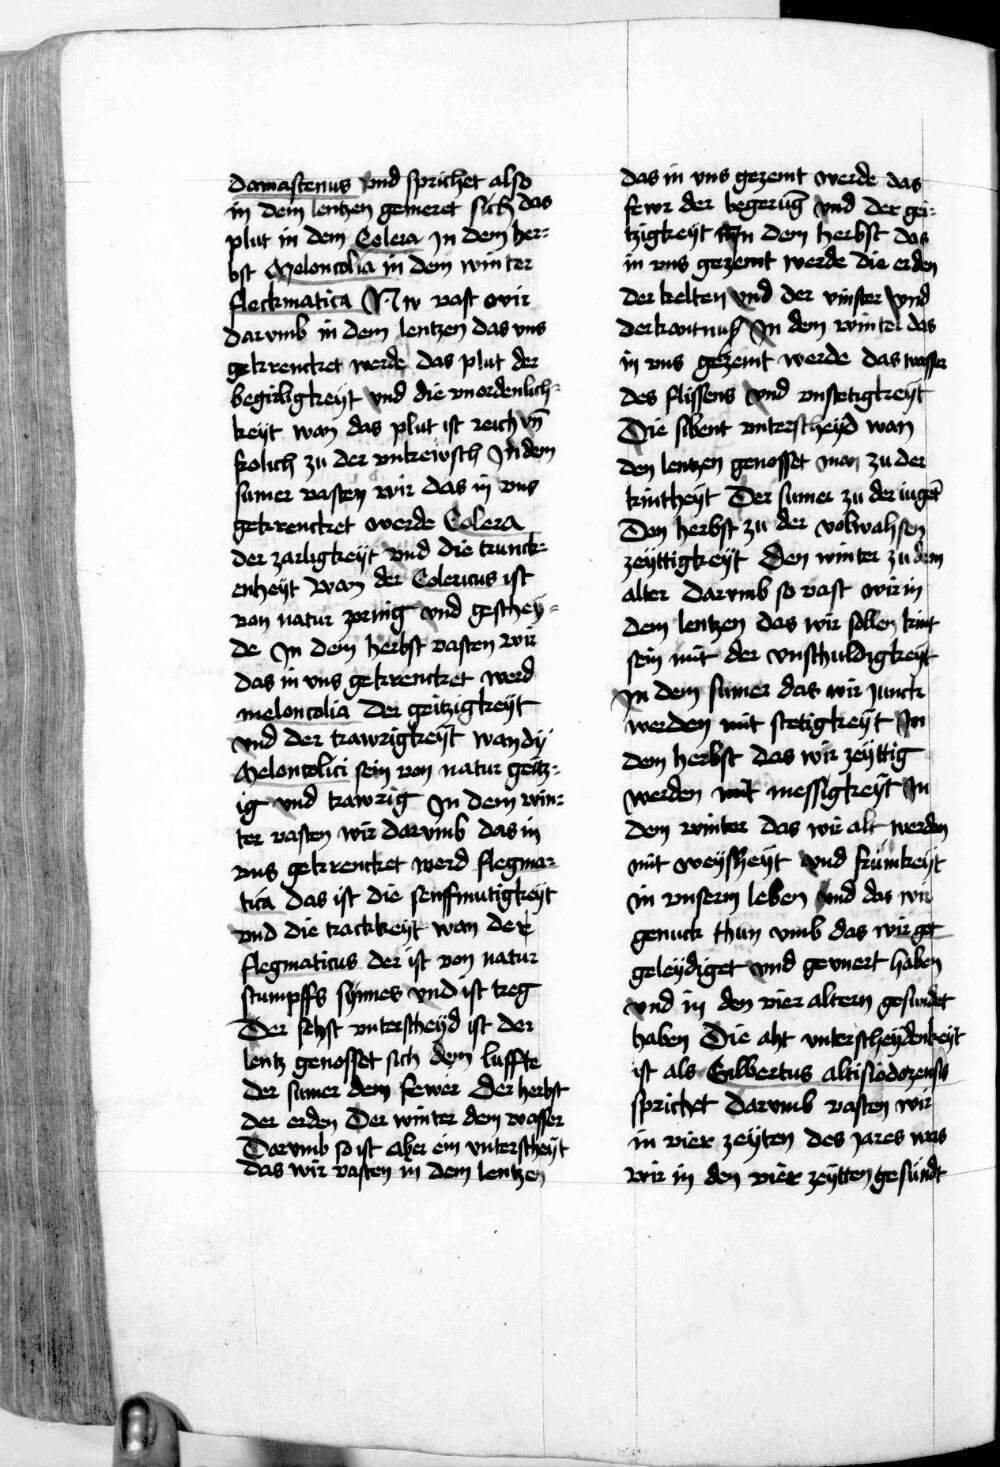 damastenus vnd sprichet also
in dem lentzen gemeret sich das
plut in dem Colera Jn dem her=
bst Meloncolia in dem winter
fleckmatica Nw vast wir
darvmb in dem lentzen das vns
gekrencket werde das plut der
begirligkeyt vnd die vnordenlich=
keyt wan das plut ist reich vn̄
frolich zu der vnkewsch Jn dem
sumer vasten wir das in vns
gekrencket werde Colera
der zarligkeyt vnd die trunck=
enheyt Wan der Colericus ist
von natur zornig vnd geschey=
de Jn dem herbst vasten wir
das in vns gekrencket werd
meloncolia Der geitzigkeyt
vnd der trawrigkeyt wan dy
Meloncolici sein von natur geitz=
ig vnd trawrig Jn dem win=
ter vasten wir darvmb das in
vns gekrencket werd flegma=
tica das ist die senffmutigkeyt
vnd die trackkeyt wan der
flegmaticus der ist von natur
stumpffs synnes vnd ist treg
Der sehst vnterscheyd ist der
lentz genosset sich dem luffte
der sumer dem fewer Der herbst
der erden Der winter dem wasser
Darvmb so ist aber ein vnterscheyt
das wir vasten in dem lentzen
das in vns gezemt werde das
fewr der begerūg vnd der gei=
tzigkeyt Jn dem herbst das
in vns gezemt werde die erden
der kelten vnd der vinster vnd
der Jn dem winter das
in vns gezemt werde das wasser
des flissens vnd vnstetigkeyt
Die sibent vnterscheyd wan
den lentzen genosset man zu der
kintheyt Der sumer zu der iuget
Den herbst zu der volwahsen
zeyttigkeyt Den winter zu dem
alter Darvmb so vast wir in
dem lentzen das wir sollen kint
sein mit der vnschuldigkeyt
Jn dem sumer das wir Junck
werden mit stetigkeyt Jn
dem herbst das wir zeyttig
werden mit messigkeyt Jn
dem winter das wir alt werden
mit weysheyt vnd frümkeyt
in vnserm leben vnd das wir
genuck thun vmb das wir get
geleydiget vnd gevnert haben
vnd in den vier altern gesundet
haben Die aht vnterscheydenkeyt
ist als Gilbertus altisiodorensis
sprichet Darvmb vasten wir
in vier zeyten des jares was
wir in den vier zeytten gesündt